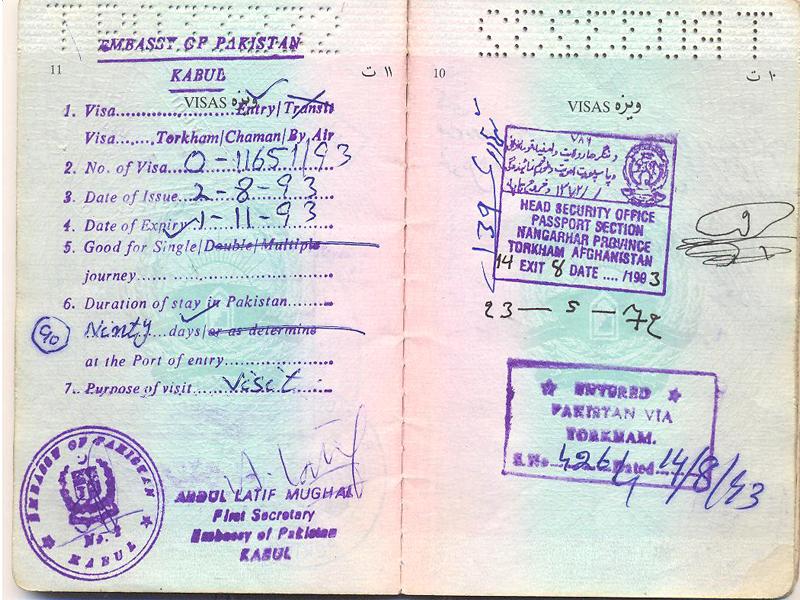 EMBASSY OF PAKISTAN
KABUL
11
ت ۱۱
VISAS ویزه
1. Visa..........Entry|Transit
Visa......Torkham|Chaman|By Air
2. No. of Visa...0-11651/93
3. Date of Issue...2-8-93
4. Date of Expiry 1-11-93
5. Good for Single|Double|Multiple
journey..........
6. Duration of stay in Pakistan........
90
Ninty days|or as determine
at the Port of entry..........
7. Purpose of visit....Visit....
EMBASSY OF PAKISTAN
No. 2
KABUL
A. Latif
ABDUL LATIF MUGHAL
First Secretary
Embassy of Pakistan
KABUL
10
۱۰ ت
VISAS ویزه
۷۸۶
HEAD SECURITY OFFICE
PASSPORT SECTION
NANGARHAR PROVINCE
TORKHAM AFGHANISTAN
14 EXIT 8 DATE ..../1993
23-5-72
ENTERED
PAKISTAN VIA
TORKHAM.
S.No 4264 Dated 14/8/93